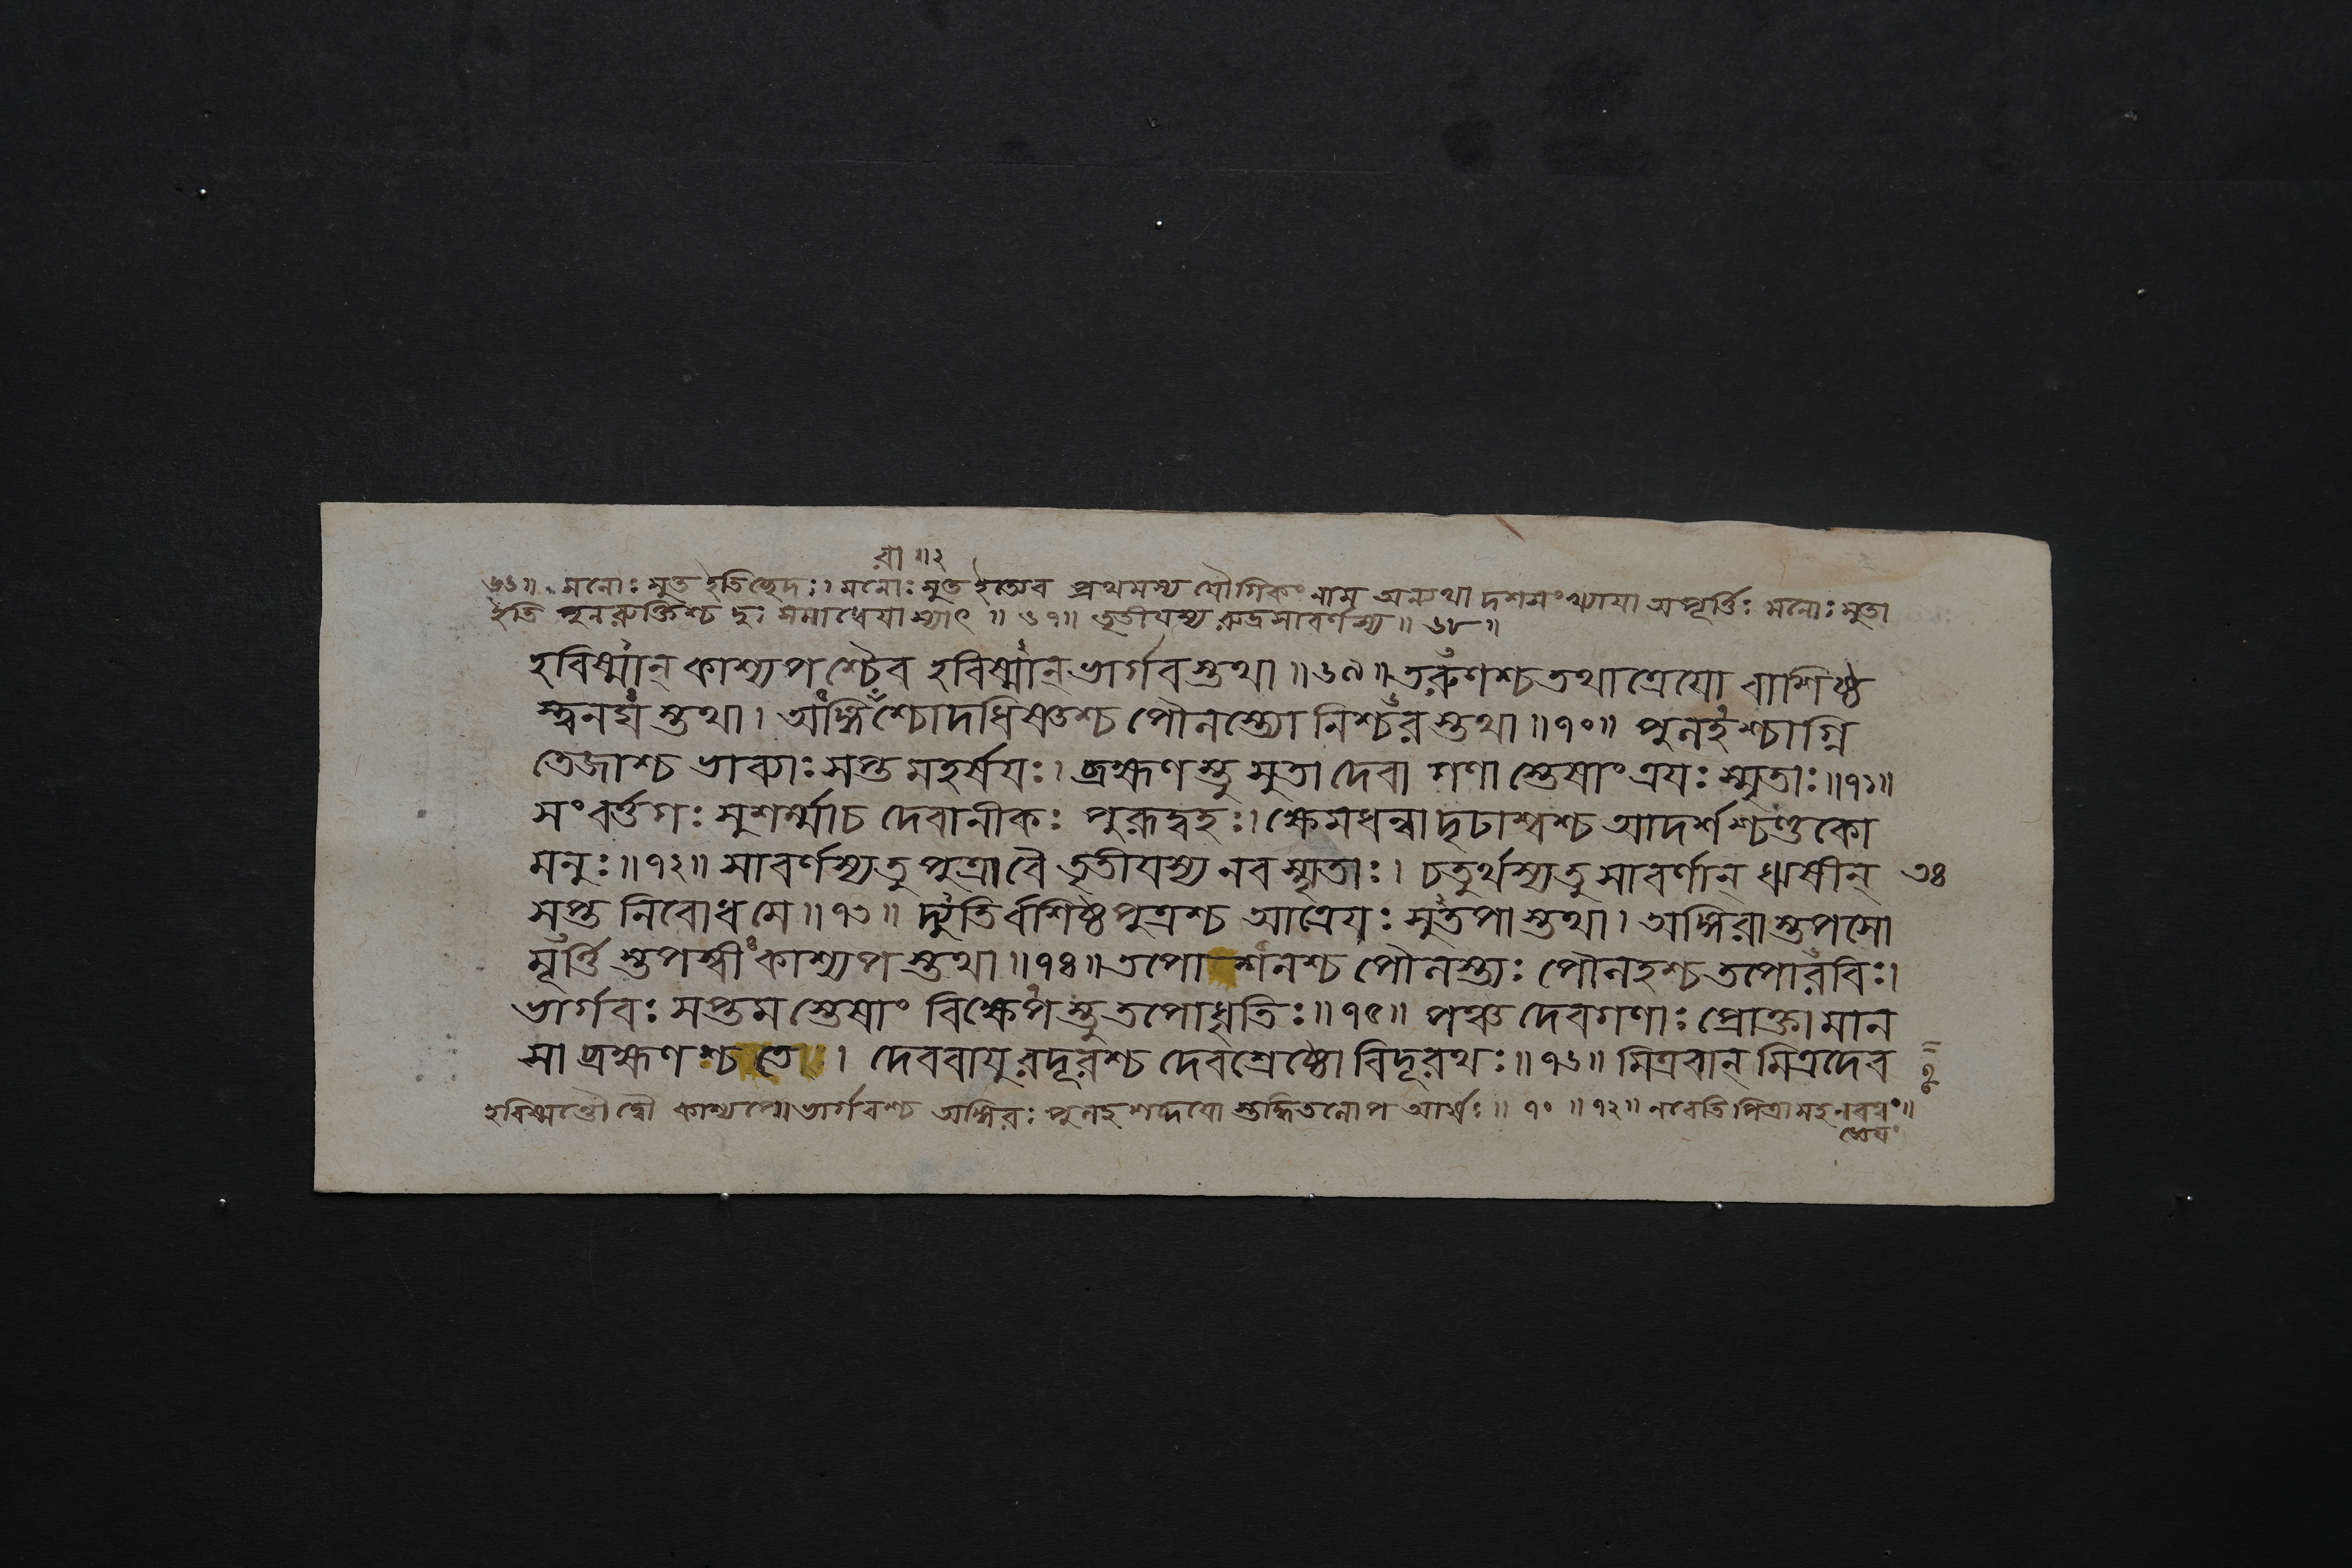 রা ॥২
৬৬॥ মনোঃ সুত ইতিচ্ছেদঃ। মনোঃ সুত ইত্যেব প্রথমস্য যৌগিকং নাম অন্যথা দশসংখ্যায়া অপূর্ত্তিঃ মনোঃ সুতা
ইতি পুনরুক্তিশ্চ দুঃসমাধেয়া স্যাৎ ॥ ৬৭॥ তৃতীয়স্য রুদ্রসাবর্ণস্য ॥ ৬৮॥
হবিষ্মান্ কাশ্যপশ্চৈব হবিষ্মান্ ভার্গবস্তথা ॥৬৯॥ তরুণশ্চ তথাত্রেয়ো বাশিষ্ঠ
স্ত্বনঘস্তথা। অঙ্গিরাশ্চোদধিষ্ণ্যশ্চ পৌলস্ত্যো নিশ্চরস্তথা ॥৭০॥ পুলহশ্চাগ্নি
তেজাশ্চ ভাব্যাঃ সপ্ত মহর্ষয়ঃ। ব্রহ্মণস্তু সুতা দেবা গণাস্তেষাং ত্রয়ঃ স্মৃতাঃ ॥৭১॥
সংবর্ত্তগঃ সুশর্ম্মাচ দেবানীকঃ পুরূদ্বহঃ। ক্ষেমধন্বা দৃঢাশ্বশ্চ আদর্শশ্চণ্ডকো
মনুঃ ॥৭২॥ সাবর্ণস্যতু পুত্রাবৈ তৃতীয়স্য নবস্মৃতাঃ। চতুর্থস্যতু সাবর্ণান্ ঋষীন্ ৩৪
সপ্ত নিবোধ মে ॥৭৩॥ দ্যুতির্বাশিষ্ঠপুত্রশ্চ আত্রেয়ঃ সুতপাস্তথা। অঙ্গিরাস্তপসো
মূর্ত্তিস্তপস্বী কাশ্যপস্তথা ॥৭৪॥ তপোশনশ্চ পৌলস্ত্যঃ পৌলহশ্চ তপোরবিঃ।
ভার্গবঃ সপ্তমস্তেষাং বিজ্ঞেয়স্তু তপোধৃতিঃ ॥৭৫॥ পঞ্চ দেবগণাঃ প্রোক্তা মান
সা ব্রহ্মণশ্চ তে। দেববায়ুরদূরশ্চ দেবশ্রেষ্ঠো বিদূরথঃ ॥৭৬॥ মিত্রবান্ মিত্রদেব
হবিষ্মন্তৌ দ্বৌ কাশ্যপো ভার্গবশ্চ অঙ্গিরঃ পুলহশব্দয়ো আর্ষঃ ॥ ৭০ ॥ ৭২॥